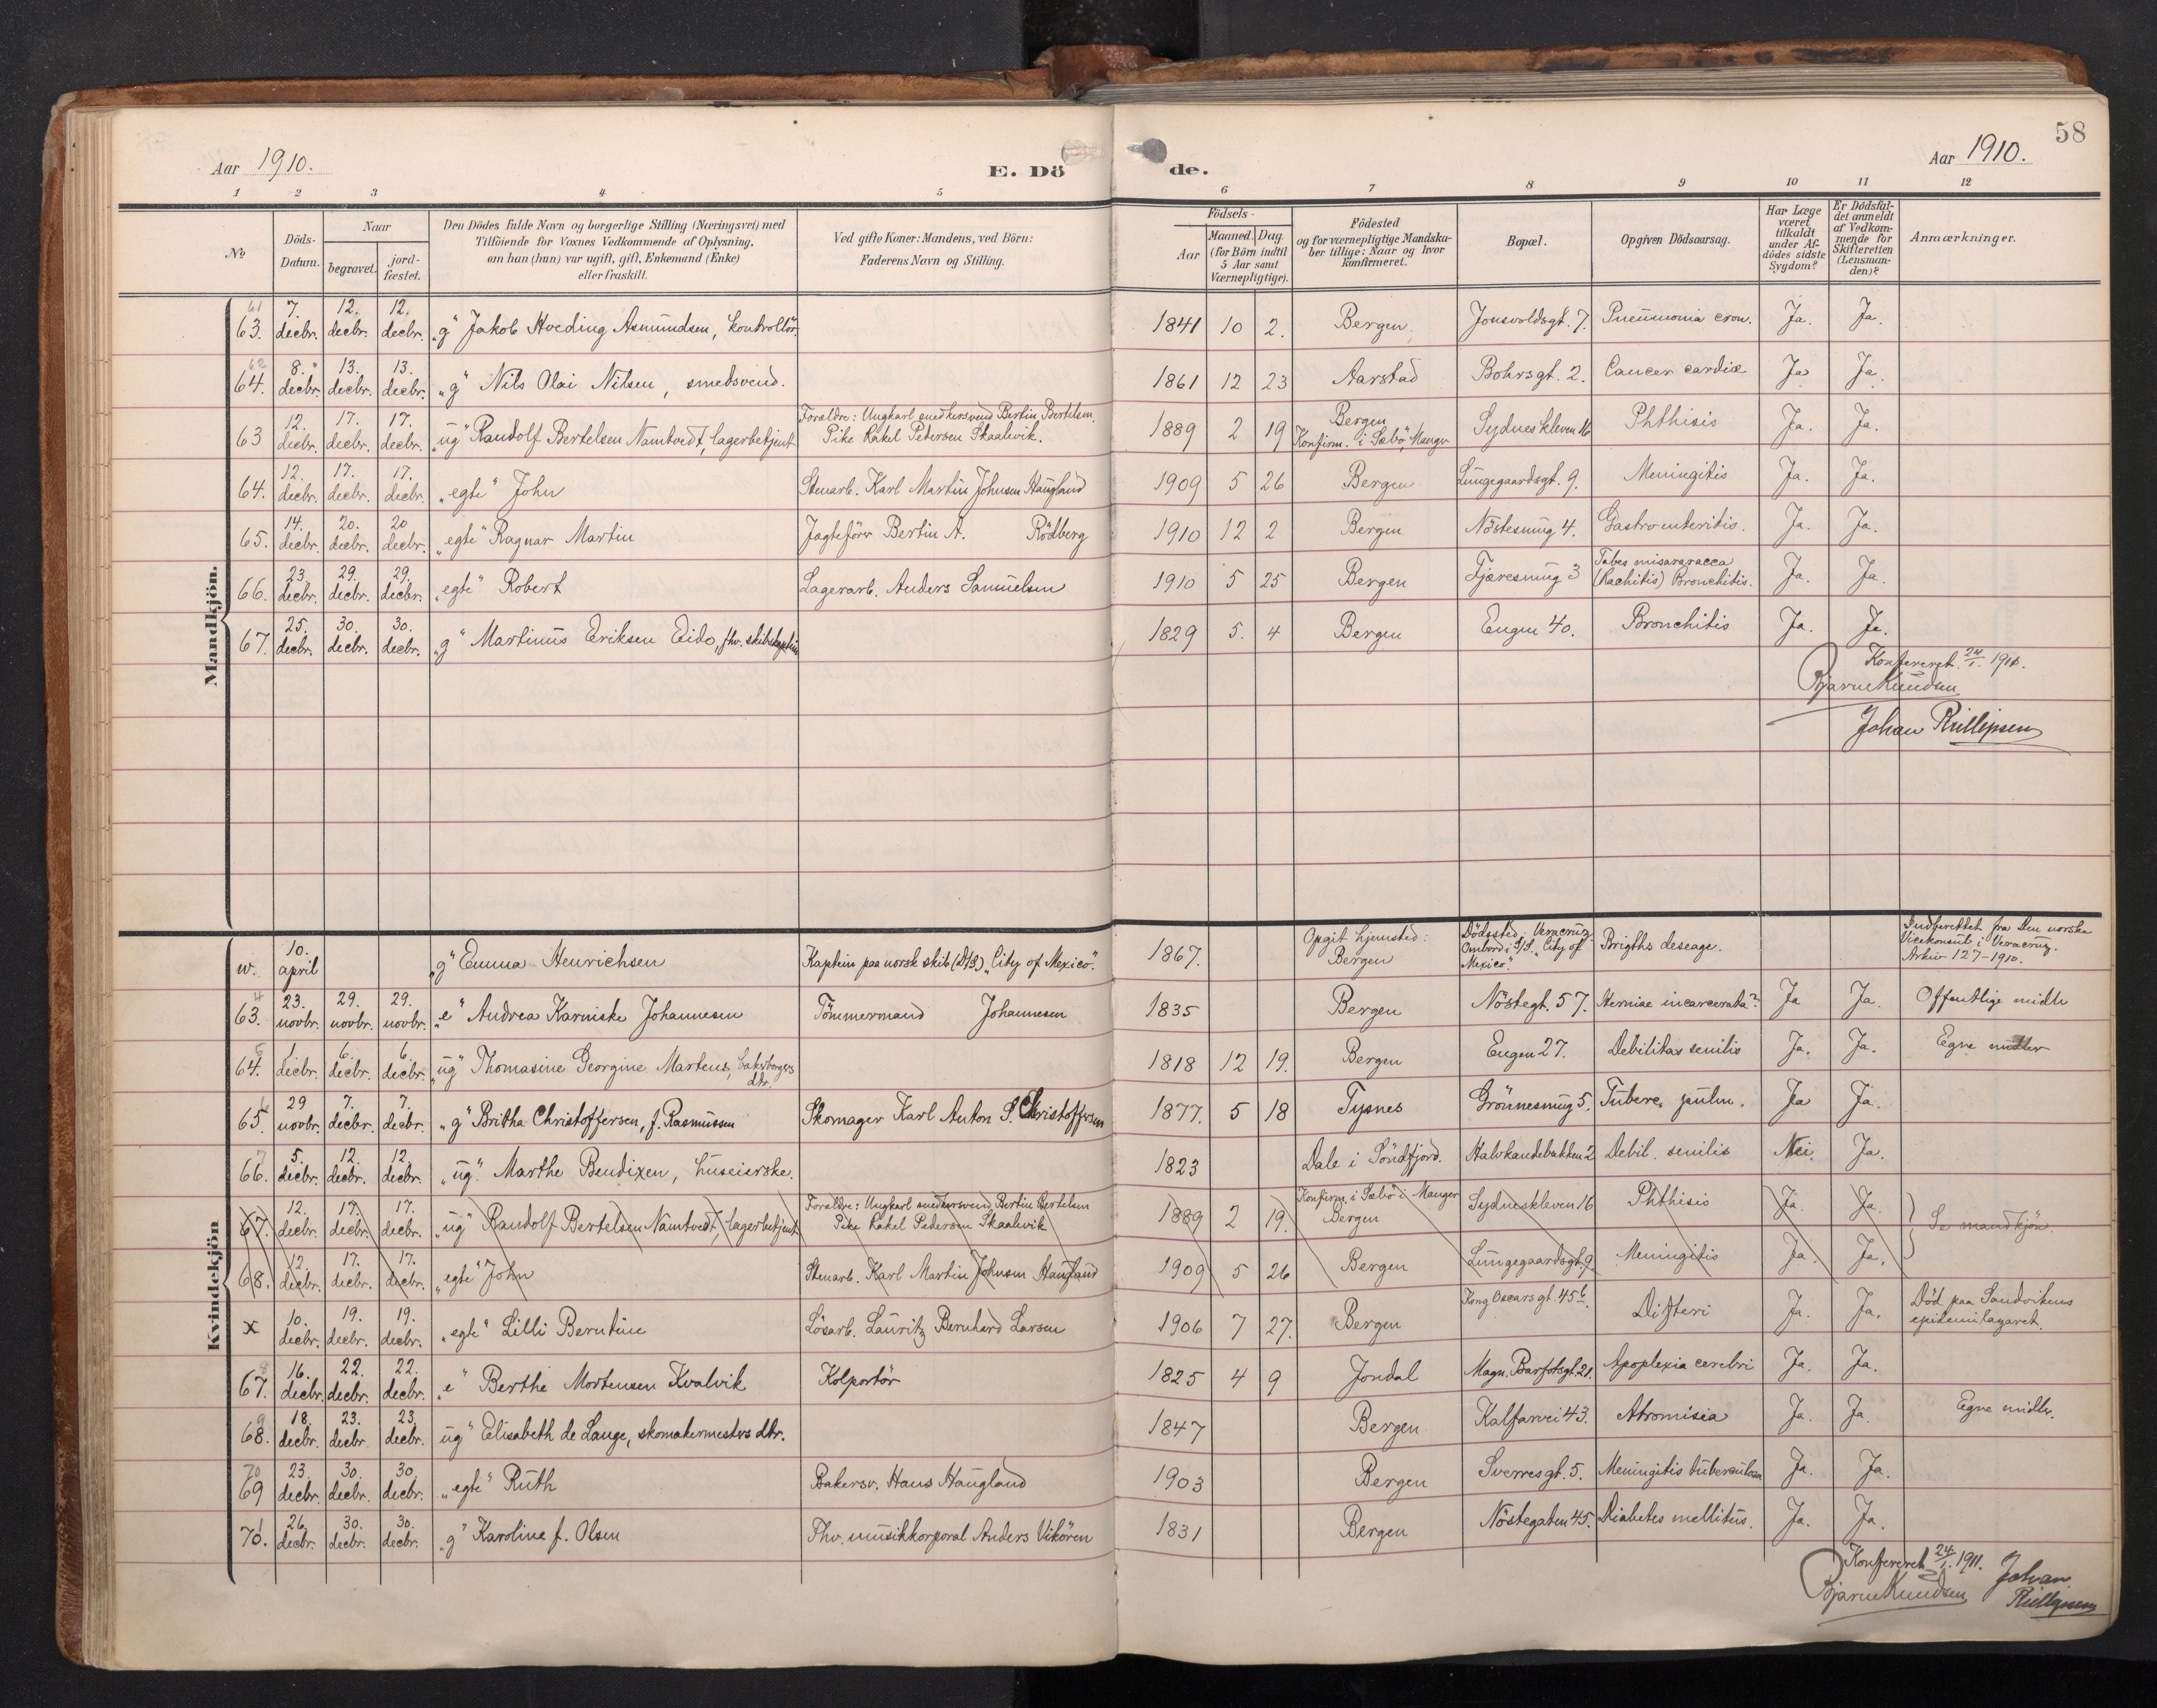 58
Aar 1910.
E. Döde.
Aar 1910.
1 2 3 4 5 6 7 8 9 10 11 12
No
Döds-Datum.
Naar
begravet.
jord-fæstet.
Den Dödes fulde Navn og borgerlige Stilling (Næringsvei) med
Tilföiende for Voxnes Vedkommende af Oplysning,
om han (hun) var ugift, gift, Enkemand (Enke)
eller fraskilt.
Ved gifte Koner: Mandens, ved Börn:
Faderens Navn og Stilling.
Födsels-
Aar
Maaned. Dag
(for Börn indtil
5 Aar samt
Værnepligtige).
Födested
og for værnepligtige Mandska-
ber tillige: Naar og hvor
konfirmeret.
Bopæl.
Opgiven Dödsaarsag.
Har Læge
været
tilkaldt
under Af-
dödes sidste
Sygdom?
Er Dödsfal-
det anmeldt
af Vedkom-
mende for
Skifteretten
(Lensman-
den)?
Anmærkninger.
Mandkjön.
61 63. 7. decbr. 12. decbr. 12. decbr. „g" Jakob Hveding Asmundsen, kontrollör. 1841 10 2. Bergen. Jonsvoldsgt. 7. Pneumonia cron. Ja. Ja.
62 64. 8. decbr. 13. decbr. 13. decbr. „g" Nils Olai Nilsen, smedsvend. 1861 12 23 Aarstad Bohrsgt. 2. Cancer cardiæ Ja Ja.
63 12. decbr. 17. decbr. 17. decbr. „ug" Randolf Bertelsen Namtvedt, lagerbetjent Forældre: Ungkarl snedkersvend Bertin Bertelsen. Pike Rakel Pedersen Skaalevik. 1889 2 19 Bergen Konfirm. i Sæbö, Manger Sydneskleven 16 Phthisis Ja. Ja.
64. 12. decbr. 17. decbr. 17. decbr. „egte" John Stenarb. Karl Martin Johnsen Haugland 1909 5 26 Bergen Lungegaardsgt. 9. Meningitis Ja. Ja.
65. 14. decbr. 20. decbr. 20 decbr. „egte" Ragnar Martin Jagtefører Bertin A. Rödberg 1910 12 2 Bergen Nöstesmug 4. Gastroenteritis. Ja. Ja.
66. 23. decbr. 29. decbr. 29. decbr. „egte" Robert Lagerarb. Anders Samuelsen 1910 5 25 Bergen Fjæresmug 3 Tabes misararacca (Rachitis) Bronchitis. Ja. Ja.
67. 25. decbr. 30. decbr. 30. decbr. „g" Martinus Eriksen Eido, fhv. skibskaptein 1829 5. 4 Bergen Engen 40. Bronchitis Ja. Ja.
Konfereret 24/1. 1911.
Bjarne Knudsen
Johan Phillipsen
Kvindekjön
w. 10. april „g" Emma Henrichsen Kaptein paa norsk skib (D/S) „City of Mexico". 1867. Opgit hjemsted: Bergen Dödssted, Veracruz Ombord i S/S. „City of Mexico". Brigths deseage. Indberettet fra Den norske Vicekonsul i Veracruz. Arkiv 127-1910.
4 63. 23. novbr. 29. novbr. 29. novbr. „e" Andrea Karniske Johannesen Tömmermand Johannesen 1835 Bergen Nöstegt. 57. Herniae incarcerata? Ja Ja. Offentlige midler
5 64. 1. decbr. 6. decbr. 6. decbr. „ug" Thomasine Georgine Martens, baksborgers dtr. 1818 12 19. Bergen Engen 27. Debilitas senilis Ja. Ja. Egne midler
6 65. 29 novbr. 7. decbr. 7. decbr. „g" Britha Christoffersen, f. Rasmussen Skomager Karl Anton S. Christoffersen 1877. 5 18 Tysnes Grönnesmug 5. Tuberc. pulm. Ja Ja.
7 66. 5. decbr. 12. decbr. 12. decbr. „ug". Marthe Bendixen, huseierske. 1823 Dale i Söndfjord. Halvkandebakken 2 Debil. senilis Nei. Ja.
67. 12. decbr. 17. decbr. 17. decbr. „ug" Randolf Bertelsen Namtvedt, lagerbetjent Forældre: Ungkarl snedkersvend Bertin Bertelsen Pike Rakel Pedersen Skaalevik 1889 2 19. Konfirm. i Sæbö i Manger Bergen Sydneskleven 16 Phthisis Ja. Ja. Se mandkjön.
68. 12. decbr. 17. decbr. 17. decbr. „egte" John Stenarb. Karl Martin Johnsen Haugland 1909 5 26 Bergen Lungegaardsgt. 9. Meningitis Ja Ja.
x 10. decbr. 19. decbr. 19. decbr. „egte" Lilli Berntine Lösarb. Lauritz Bernhard Larsen 1906 7 27. Bergen Kong Oscarsgt. 45 b. Difteri Ja. Ja. Död paa Sandvikens epidemilazaret.
8 67. 16. decbr. 22. decbr. 22. decbr. „e" Berthe Mortensen Kvalvik Kolportör 1825 4 9 Jondal Magn. Barfotsgt. 21. Apoplexia cerebri Ja. Ja.
9 68. 18. decbr. 23. decbr. 23. decbr. ug" Elisabeth de Lange, skomakermesters dtr. 1847 Bergen Kalfarvei 43. Atromisia Ja. Ja. Egne midler.
70 69 23. decbr. 30. decbr. 30. decbr. „egte" Ruth Bakersv. Hans Haugland 1903 Bergen Sverresgt. 5. Meningitis tuberculosa Ja. Ja.
1 70. 26. decbr. 30. decbr. 30. decbr. „g" Karoline f. Olsen Fhv. musikkorporal Anders Vikören 1831 Bergen Nöstegaten 45. Diabetes mellitus. Ja. Ja.
Konfereret 24/1. 1911.
Bjarne Knudsen
Johan Phillipsen